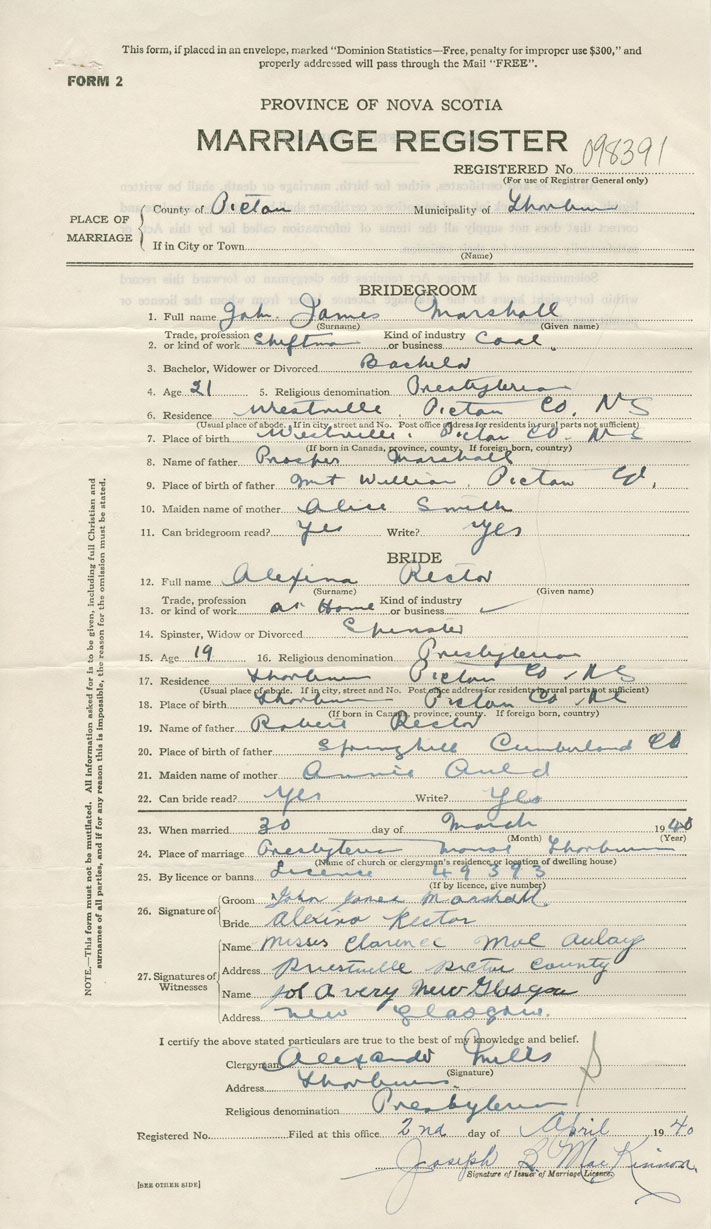 This form, if placed in an envelope, marked "Dominion Statistics—Free, penalty for improper use $300," and
properly addressed will pass through the Mail "FREE".
FORM 2
PROVINCE OF NOVA SCOTIA
MARRIAGE REGISTER
REGISTERED No. 098391
(For use of Registrar General only)
PLACE OF MARRIAGE
County of Pictou Municipality of Thorburn
If in City or Town
(Name)
BRIDEGROOM
1. Full name John James Marshall
(Surname) (Given name)
2. Trade, profession or kind of work Shiftman Kind of industry or business Coal
3. Bachelor, Widower or Divorced Bachelor
4. Age 21 5. Religious denomination Presbyterian
6. Residence Westville, Pictou Co, NS
(Usual place of abode. If in city, street and No. Post office address for residents in rural parts not sufficient)
7. Place of birth Westville, Pictou Co. NS
(If born in Canada, province, county. If foreign born, country)
8. Name of father Prosper Marshall
9. Place of birth of father Mt William, Pictou Co.
10. Maiden name of mother Alice Smith
11. Can bridegroom read? Yes Write? Yes
BRIDE
12. Full name Alexina Rector
(Surname) (Given name)
13. Trade, profession or kind of work at Home Kind of industry or business
14. Spinster, Widow or Divorced Spinster
15. Age 19 16. Religious denomination Presbyterian
17. Residence Thorburn Pictou Co, NS
(Usual place of abode. If in city, street and No. Post office address for residents in rural parts not sufficient)
18. Place of birth Thorburn Pictou Co, NS
(If born in Canada, province, county. If foreign born, country)
19. Name of father Robert Rector
20. Place of birth of father Springhill Cumberland Co
21. Maiden name of mother Annie Auld
22. Can bride read? Yes Write? Yes
23. When married 30 day of March 1940
(Month) (Year)
24. Place of marriage Presbyterian Manse Thorburn
(Name of church or clergyman's residence, or location of dwelling house)
25. By licence or banns License 49393
(If by licence, give number)
26. Signature of
Groom John James Marshall
Bride Alexina Rector
27. Signatures of Witnesses
Name Misses Clarence Mac Aulay
Address Priestville Pictou County
Name Avery New Glasgow
Address New Glasgow.
I certify the above stated particulars are true to the best of my knowledge and belief.
Clergyman Alexander Mills
(Signature)
Address Thorburn.
Religious denomination Presbyterian
Registered No. Filed at this office 2nd day of April 1940
Joseph B MacKinnon
Signature of Issuer of Marriage Licence.
[SEE OTHER SIDE]
NOTE.—This form must not be mutilated. All information asked for is to be given, including full Christian and
surnames of all parties, and if for any reason this is impossible, the reason for the omission must be stated.